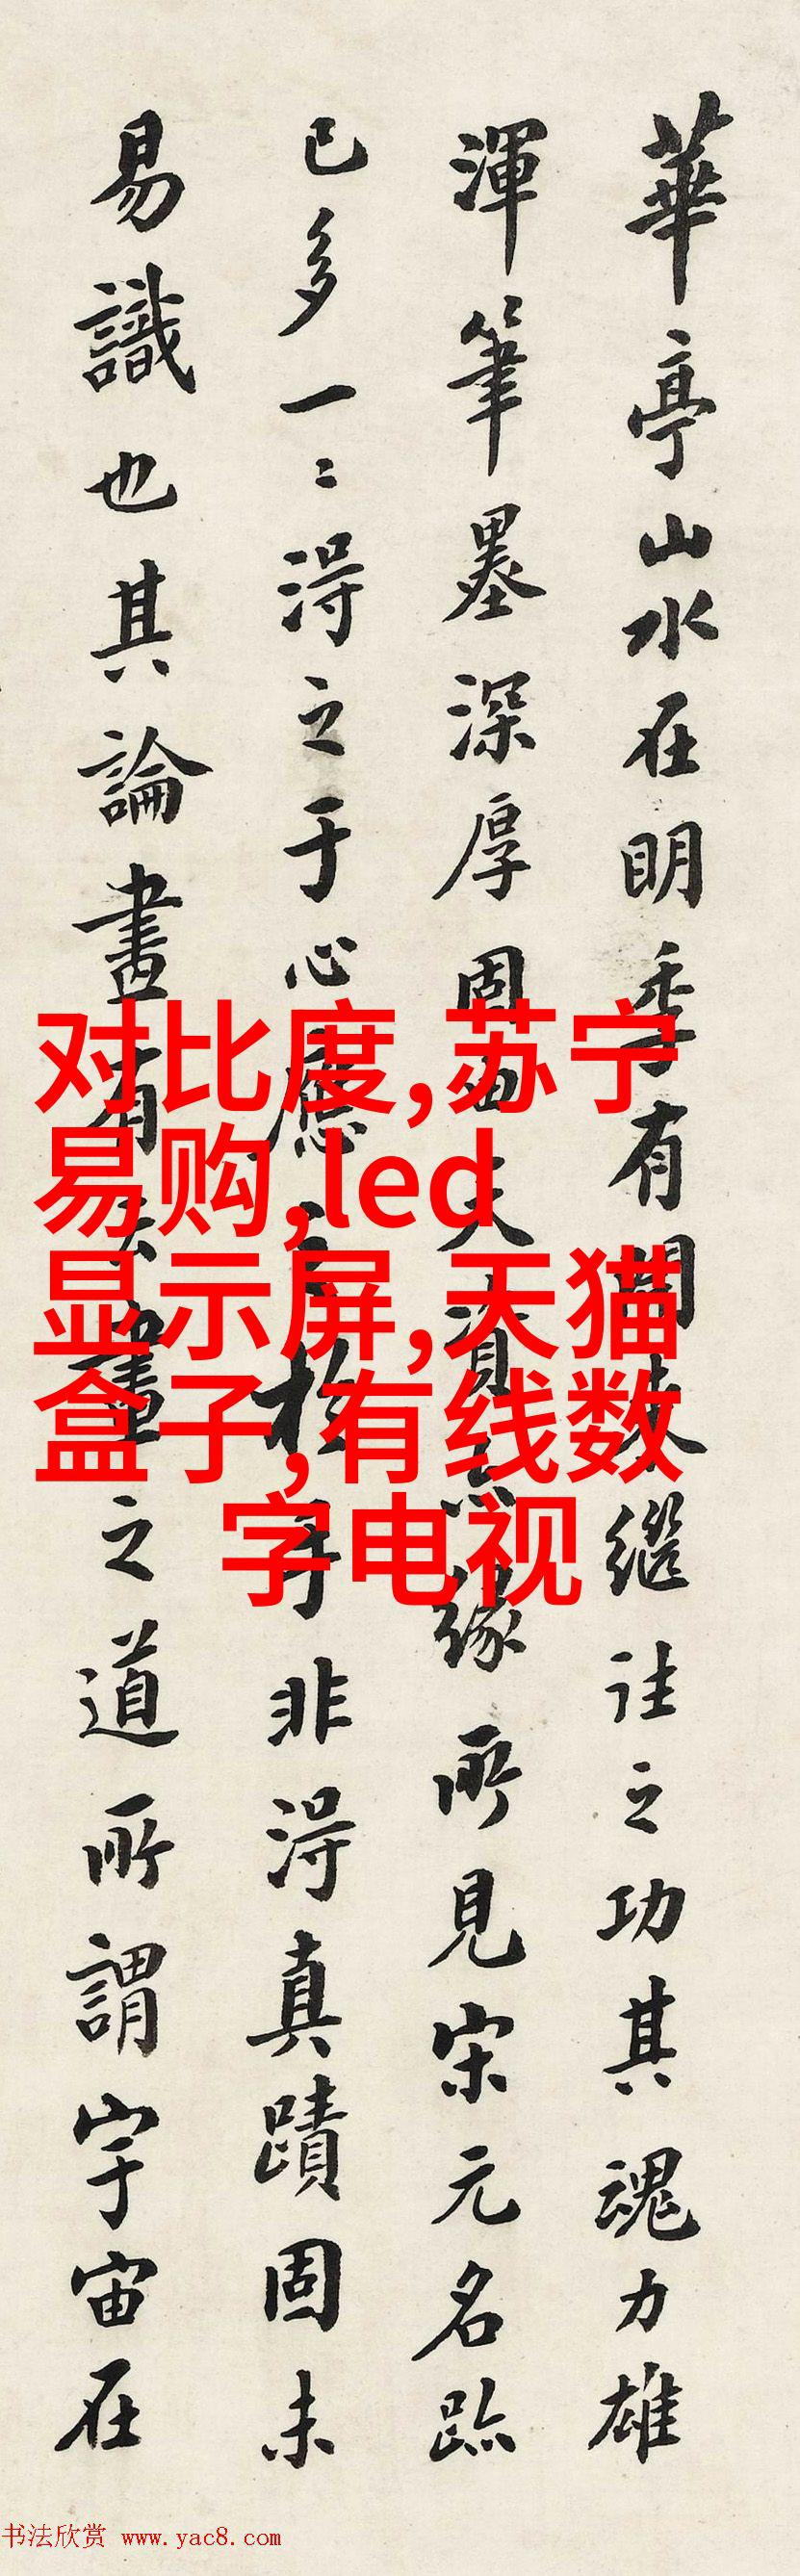 華亭山水在明季有開來繼往之功其魂力雄
渾筆墨深厚固由天資亦緣所見宋元名跡
已多一〻得之于心應之於手非得真蹟固未
易識也其論畫有云畫之道所謂宇宙在
对比度,苏宁
易购,led
显示屏,天猫
盒子,有线数
字电视
书法欣赏 www.yac8.com